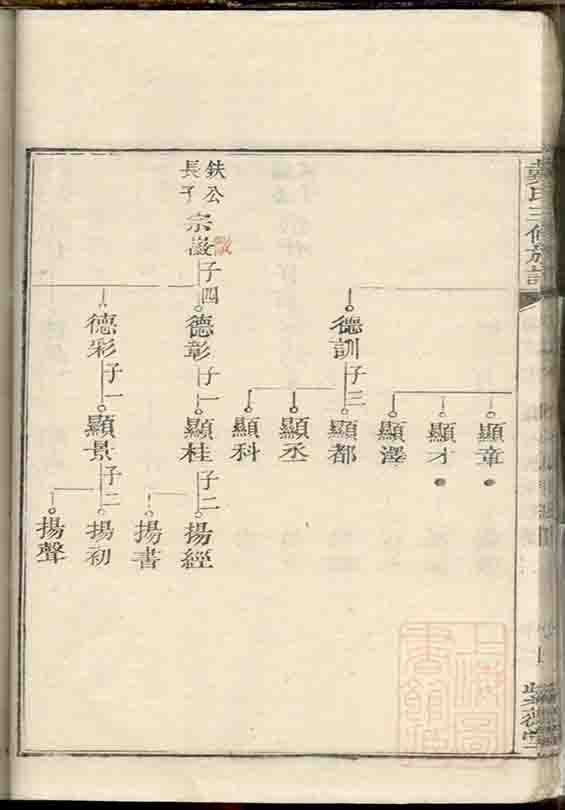 戴氏三修族譜
顯章
顯才
顯澤
德訓
子三
顯都
顯丞
顯科
鈇公
長子
宗嶽
子四
德彰
子一
顯桂
子二
揚經
揚書
德彩
子一
顯景
子二
揚初
揚聲
上海圖
書館藏